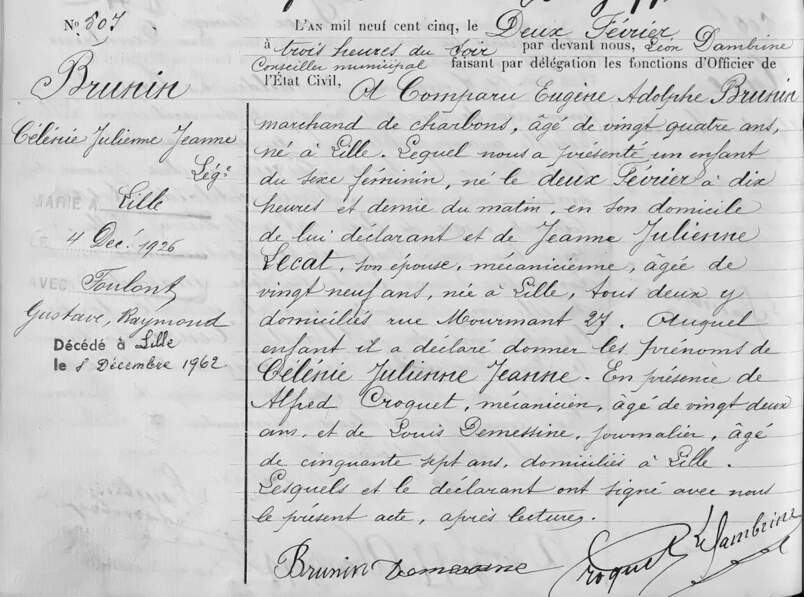 N° 507
Brunin
Célénie Julienne Jeanne
Lég.e
MARIÉ À Lille
LE 4 Déc. 1926
AVEC Foulont
Gustave, Raymond
Décédé à Lille
le 8 Décembre 1962
L'AN mil neuf cent cinq, le Deux Février
à trois heures du soir par devant nous, Léon Dambrine
Conseiller municipal faisant par délégation les fonctions d'Officier de
l'État Civil, A Comparu Eugène Adolphe Brunin
marchand de charbons, âgé de vingt quatre ans,
né à Lille. Lequel nous a présenté un enfant
du sexe féminin, né le deux Février à dix
heures et demie du matin, en son domicile
de lui déclarant et de Jeanne Julienne
Lecat, son épouse, mécanicienne, âgée de
vingt neuf ans, née à Lille, tous deux y
domiciliés rue Mourmant 27. Auquel
enfant il a déclaré donner les prénoms de
Célénie Julienne Jeanne. En présence de
Alfred Croquet, mécanicien, âgé de vingt deux
ans, et de Louis Demessine, journalier, âgé
de cinquante sept ans, domiciliés à Lille.
Lesquels et le déclarant ont signé avec nous
le présent acte, après lecture.
Brunin Demessine Croquet L Dambrine